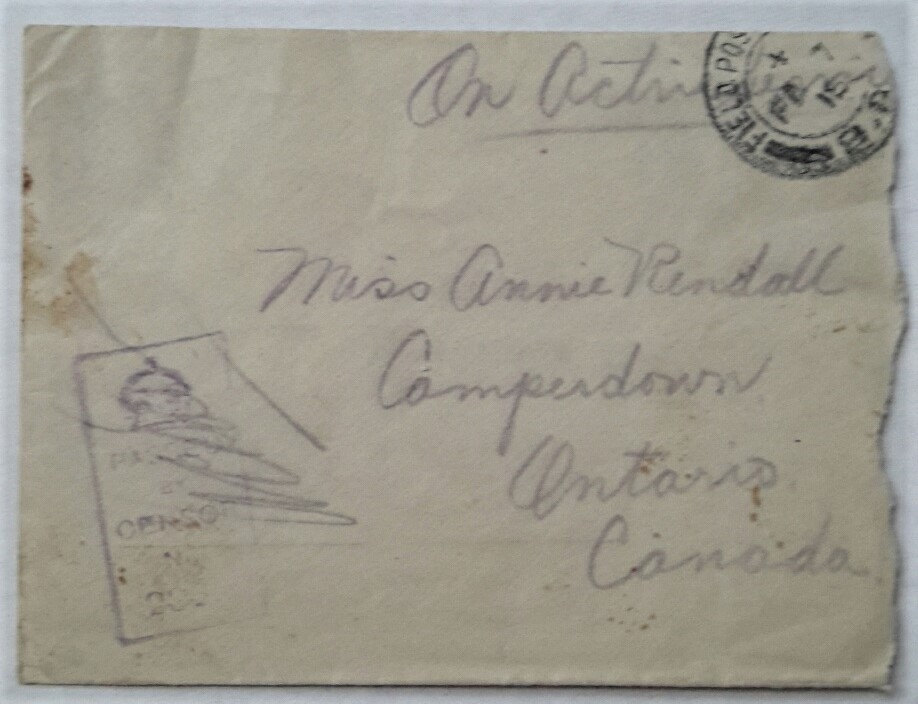 On Active
FIELD POS
X
FE 7
15
8.B
Miss Annie Rendall
Camperdown
Ontario
Canada
PASSED
BY
CENSOR